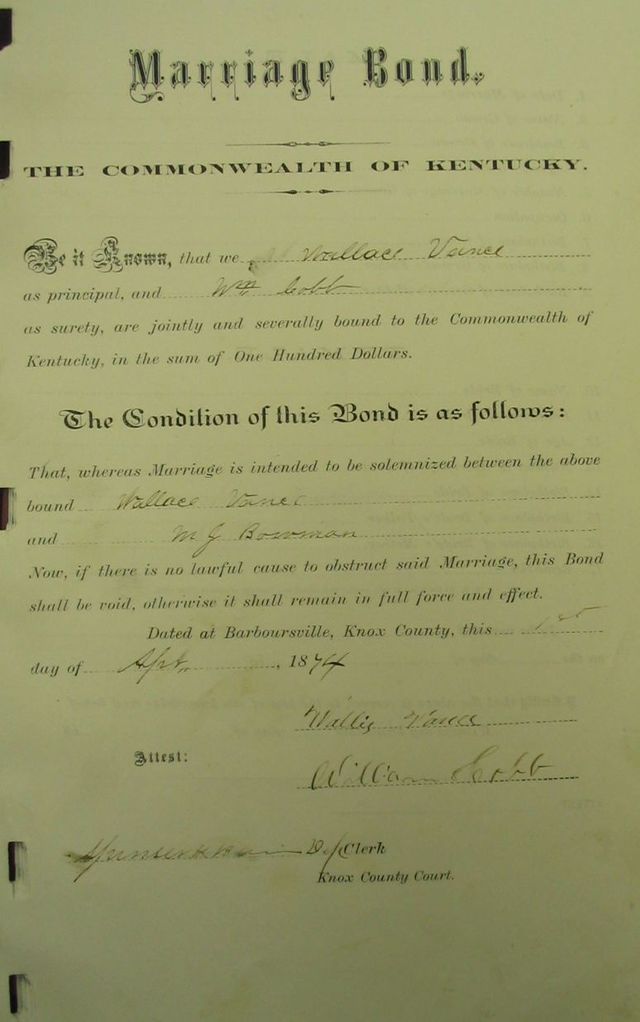 Marriage Bond.
THE COMMONWEALTH OF KENTUCKY.
Be it Known, that we Wallace Vance
as principal, and Wm Cobb
as surety, are jointly and severally bound to the Commonwealth of
Kentucky, in the sum of One Hundred Dollars.
The Condition of this Bond is as follows:
That, whereas Marriage is intended to be solemnized between the above
bound Wallace Vance
and M J Bowman
Now, if there is no lawful cause to obstruct said Marriage, this Bond
shall be void, otherwise it shall remain in full force and effect.
Dated at Barboursville, Knox County, this 1st
day of Apr, 1874
Wallis Vance
Attest:
William Cobb
Clerk
Knox County Court.